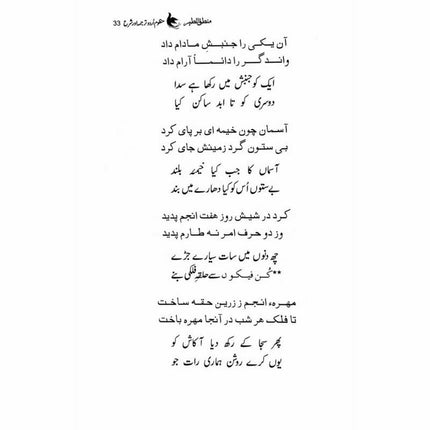 منطق الطیر منظوم اردو ترجمہ اور شرح 33
آن یکی را جنبشِ مادام داد
واندگر را دائماً آرام داد
ایک کو جنبش میں رکھا ہے سدا
دوسری کو تا ابد ساکن کیا
آسمان چون خیمه ای بر پای کرد
بی ستون گرد زمینش جای کرد
آسماں کا جب کیا خیمہ بلند
بے ستوں اُس کو کیا دھارے میں بند
کرد در شیش روز هفت انجم پدید
وز دو حرف امر نه طارم پدید
چھ دنوں میں سات سیارے جڑے
**کُن فیکوں سے حلقۂ فلکی بنے
مهرهٔ انجم ز زرین حقه ساخت
تا فلک هر شب در آنجا مهره باخت
پھر سجا کے رکھ دیا آکاش کو
یوں کرے روشن ہماری رات جو